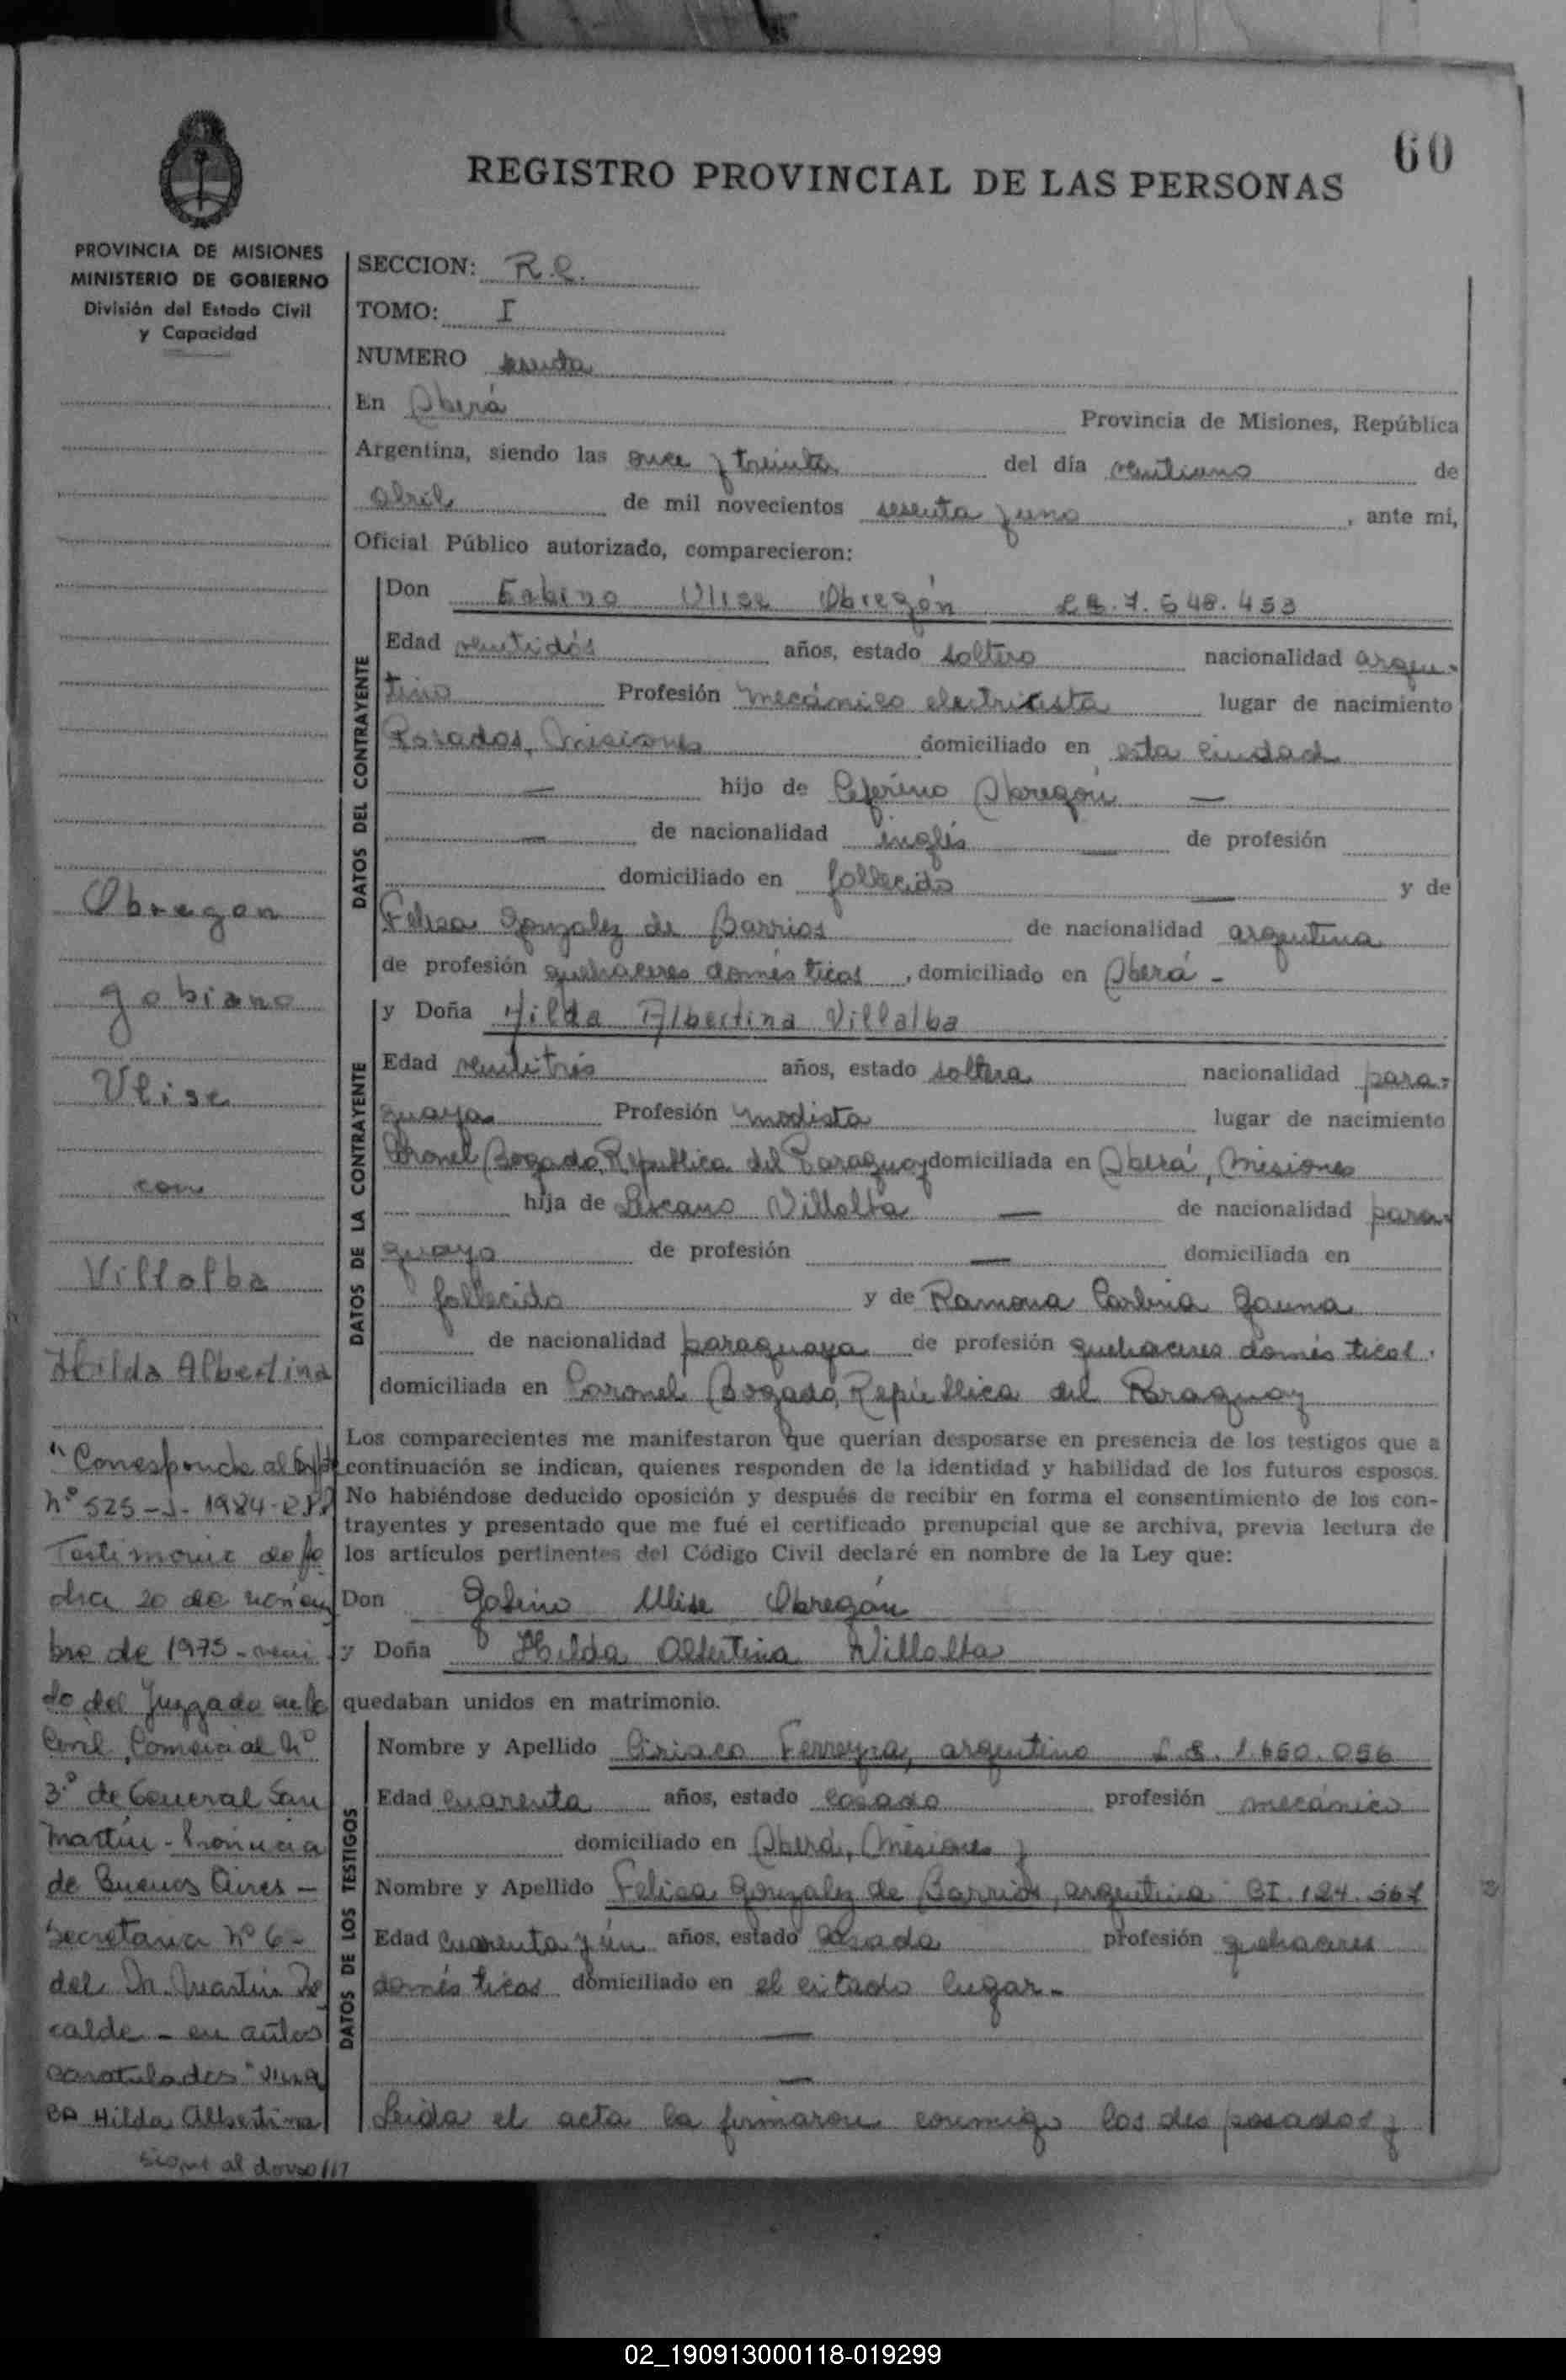 60
REGISTRO PROVINCIAL DE LAS PERSONAS
PROVINCIA DE MISIONES
MINISTERIO DE GOBIERNO
División del Estado Civil
y Capacidad
SECCION: R.C.
TOMO: I
NUMERO sesenta
En Oberá Provincia de Misiones, República
Argentina, siendo las once y treinta del día veintiuno de
abril de mil novecientos sesenta y uno, ante mi,
Oficial Público autorizado, comparecieron:
DATOS DEL CONTRAYENTE
Don Gabino Ulise Obregón 7.548.453
Edad veintidós años, estado soltero nacionalidad argen-
tino Profesión mecánico electricista lugar de nacimiento
Posadas, Misiones domiciliado en esta ciudad
— hijo de Ceferino Obregón —
— de nacionalidad inglés — de profesión
domiciliado en fallecido — y de
Felisa Gonzalez de Barrios de nacionalidad argentina
de profesión quehaceres domésticos, domiciliado en Oberá -
DATOS DE LA CONTRAYENTE
y Doña Hilda Albertina Villalba
Edad veintitrés años, estado soltera nacionalidad para-
guaya Profesión modista lugar de nacimiento
Coronel Bogado, República del Paraguay domiciliada en Oberá, Misiones
hija de Villalba — de nacionalidad para-
guayo de profesión — domiciliada en
fallecido y de Ramona Gauna
de nacionalidad paraguaya de profesión quehaceres domésticos.
domiciliada en Coronel Bogado, República del Paraguay
Los comparecientes me manifestaron que querían desposarse en presencia de los testigos que a
continuación se indican, quienes responden de la identidad y habilidad de los futuros esposos.
No habiéndose deducido oposición y después de recibir en forma el consentimiento de los con-
trayentes y presentado que me fué el certificado prenupcial que se archiva, previa lectura de
los artículos pertinentes del Código Civil declaré en nombre de la Ley que:
Don Gabino Ulise Obregón
y Doña Hilda Albertina Villalba
quedaban unidos en matrimonio.
DATOS DE LOS TESTIGOS
Nombre y Apellido Ciriaco Ferreyra, argentino 1.650.056
Edad cuarenta años, estado casado profesión mecánico
domiciliado en Oberá, Misiones y
Nombre y Apellido Felisa Gonzalez de Barrios, argentina CI. 124.567
Edad cuarenta y un años, estado casada profesión quehaceres
domésticos domiciliado en el citado lugar.-
—
—
Leida el acta la firmaron conmigo los desposados y
Obregon
Gabino
Ulise
con
Villalba
Hilda Albertina
"Corresponde al Expte
Nº 525-J-1984
Testimonio de fe
cha 20 de noviem
bre de 1975 - veni
do del Juzgado en lo
Civil, Comercial Nº
3º de General San
Martín - Provincia
de Buenos Aires -
Secretaría Nº 6 -
del Dr. Martín
calde - en autos
caratulados
Hilda Albertina
sigue al dorso ///
02_190913000118-019299